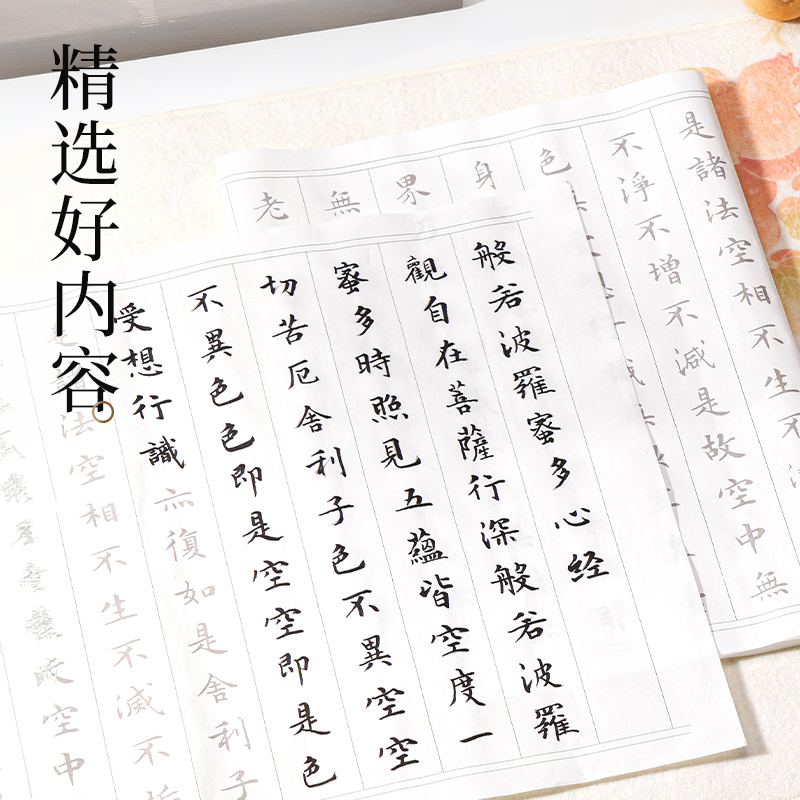 精选好内容
般若波羅蜜多心经
觀自在菩薩行深般若波羅
蜜多時照見五蘊皆空度一
切苦厄舍利子色不異空空
不異色色即是空空即是色
受想行識亦復如是舍利子
法空相不生不滅不
空中
是諸法空相不生不
不淨不增不減是故空中無
色
身
界
無
老